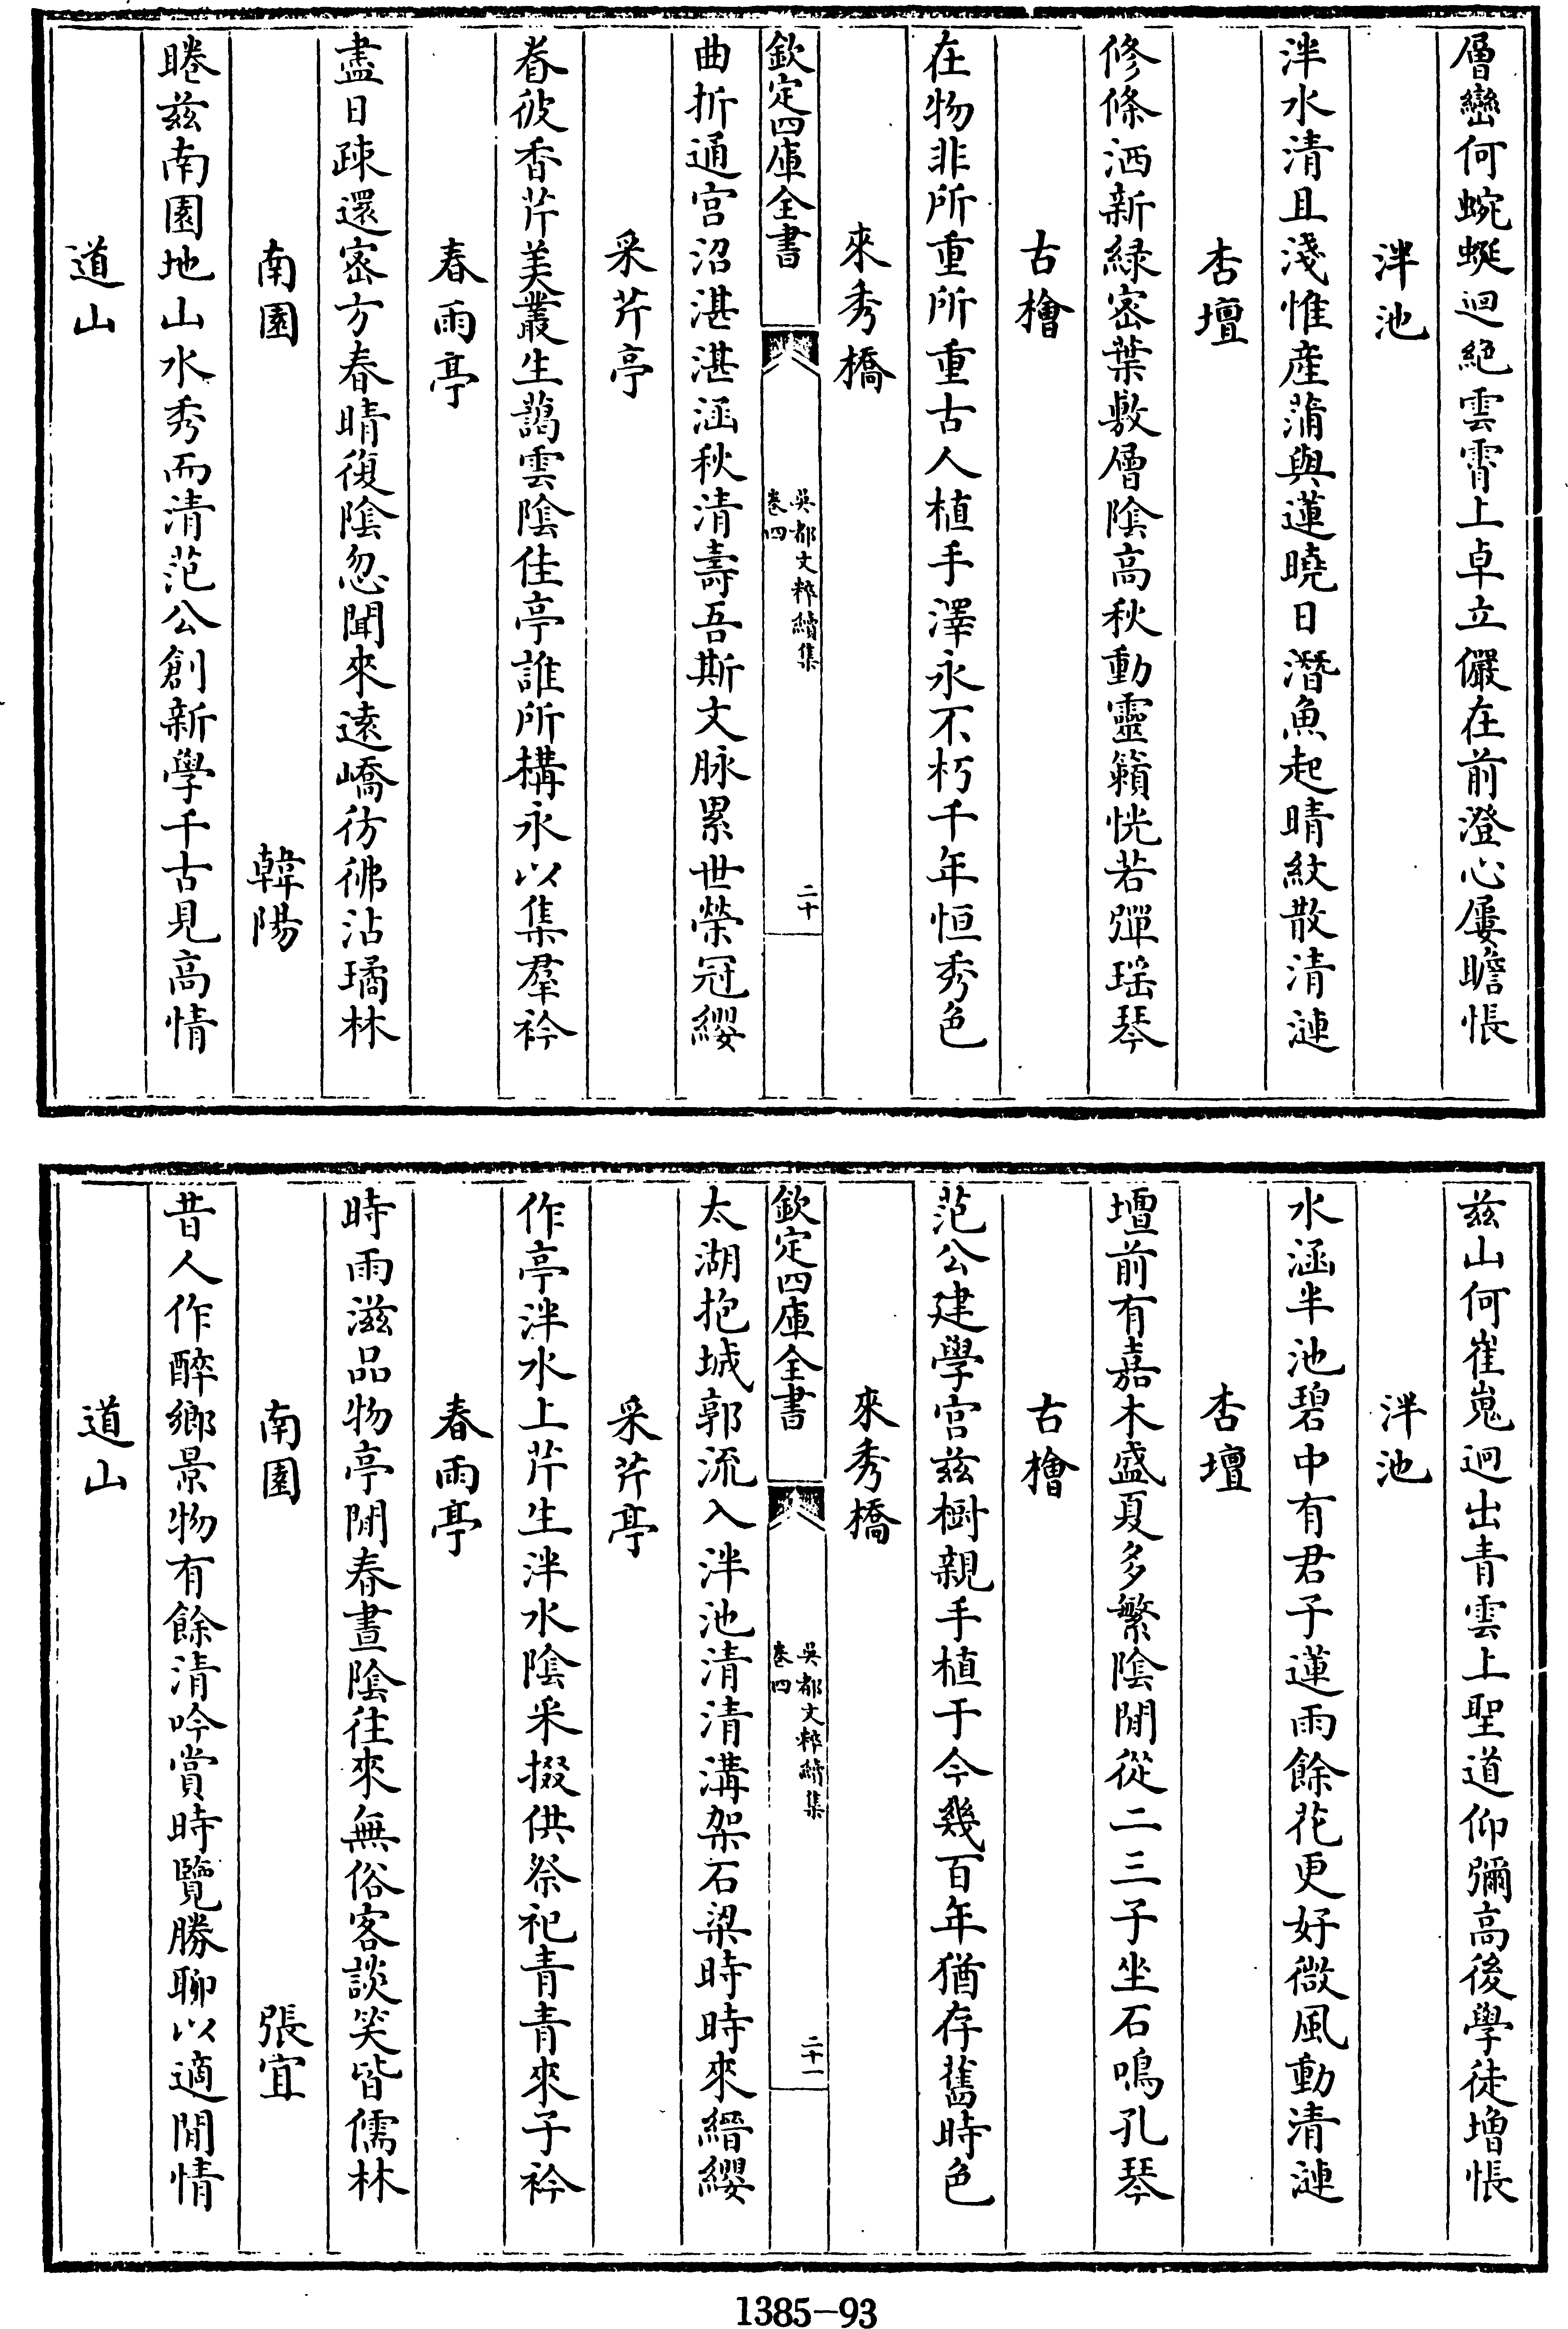 層巒何蜿蜒迥絕雲霄上卓立儼在前澄心屢瞻悵
泮池
泮水清且淺惟産蒲與蓮曉日潛魚起晴紋散清漣
杏壇
修條洒新緑宻葉敷層陰高秋動靈籟恍若彈瑶琴
古檜
在物非所重所重古人植手澤永不朽千年恒秀色
來秀橋
欽定四庫全書
吳都文粹續集
卷四
二十
曲折通宫沼湛湛涵秋清壽吾斯文脉累世榮冠纓
采芹亭
眷彼香芹美叢生藹雲陰佳亭誰所構永以集羣衿
春雨亭
盡日疎還宻方春晴復陰忽聞來逺嶠彷彿沾璚林
南園
韓陽
睠兹南園地山水秀而清范公創新學千古見高情
道山
兹山何崔嵬迥出青雲上聖道仰彌高後學徒增悵
泮池
水涵半池碧中有君子蓮雨餘花更好微風動清漣
杏壇
壇前有嘉木盛夏多繁陰閒從二三子坐石鳴孔琴
古檜
范公建學宫兹樹親手植于今幾百年猶存舊時色
來秀橋
欽定四庫全書
吳都文粹續集
卷四
二十一
太湖抱城郭流入泮池清清溝架石梁時時來縉纓
采芹亭
作亭泮水上芹生泮水陰采掇供祭祀青青來子衿
春雨亭
時雨滋品物亭閒春晝陰往來無俗客談笑皆儒林
南園
張宜
昔人作醉鄉景物有餘清吟賞時覽勝聊以適閒情
道山
1385-93